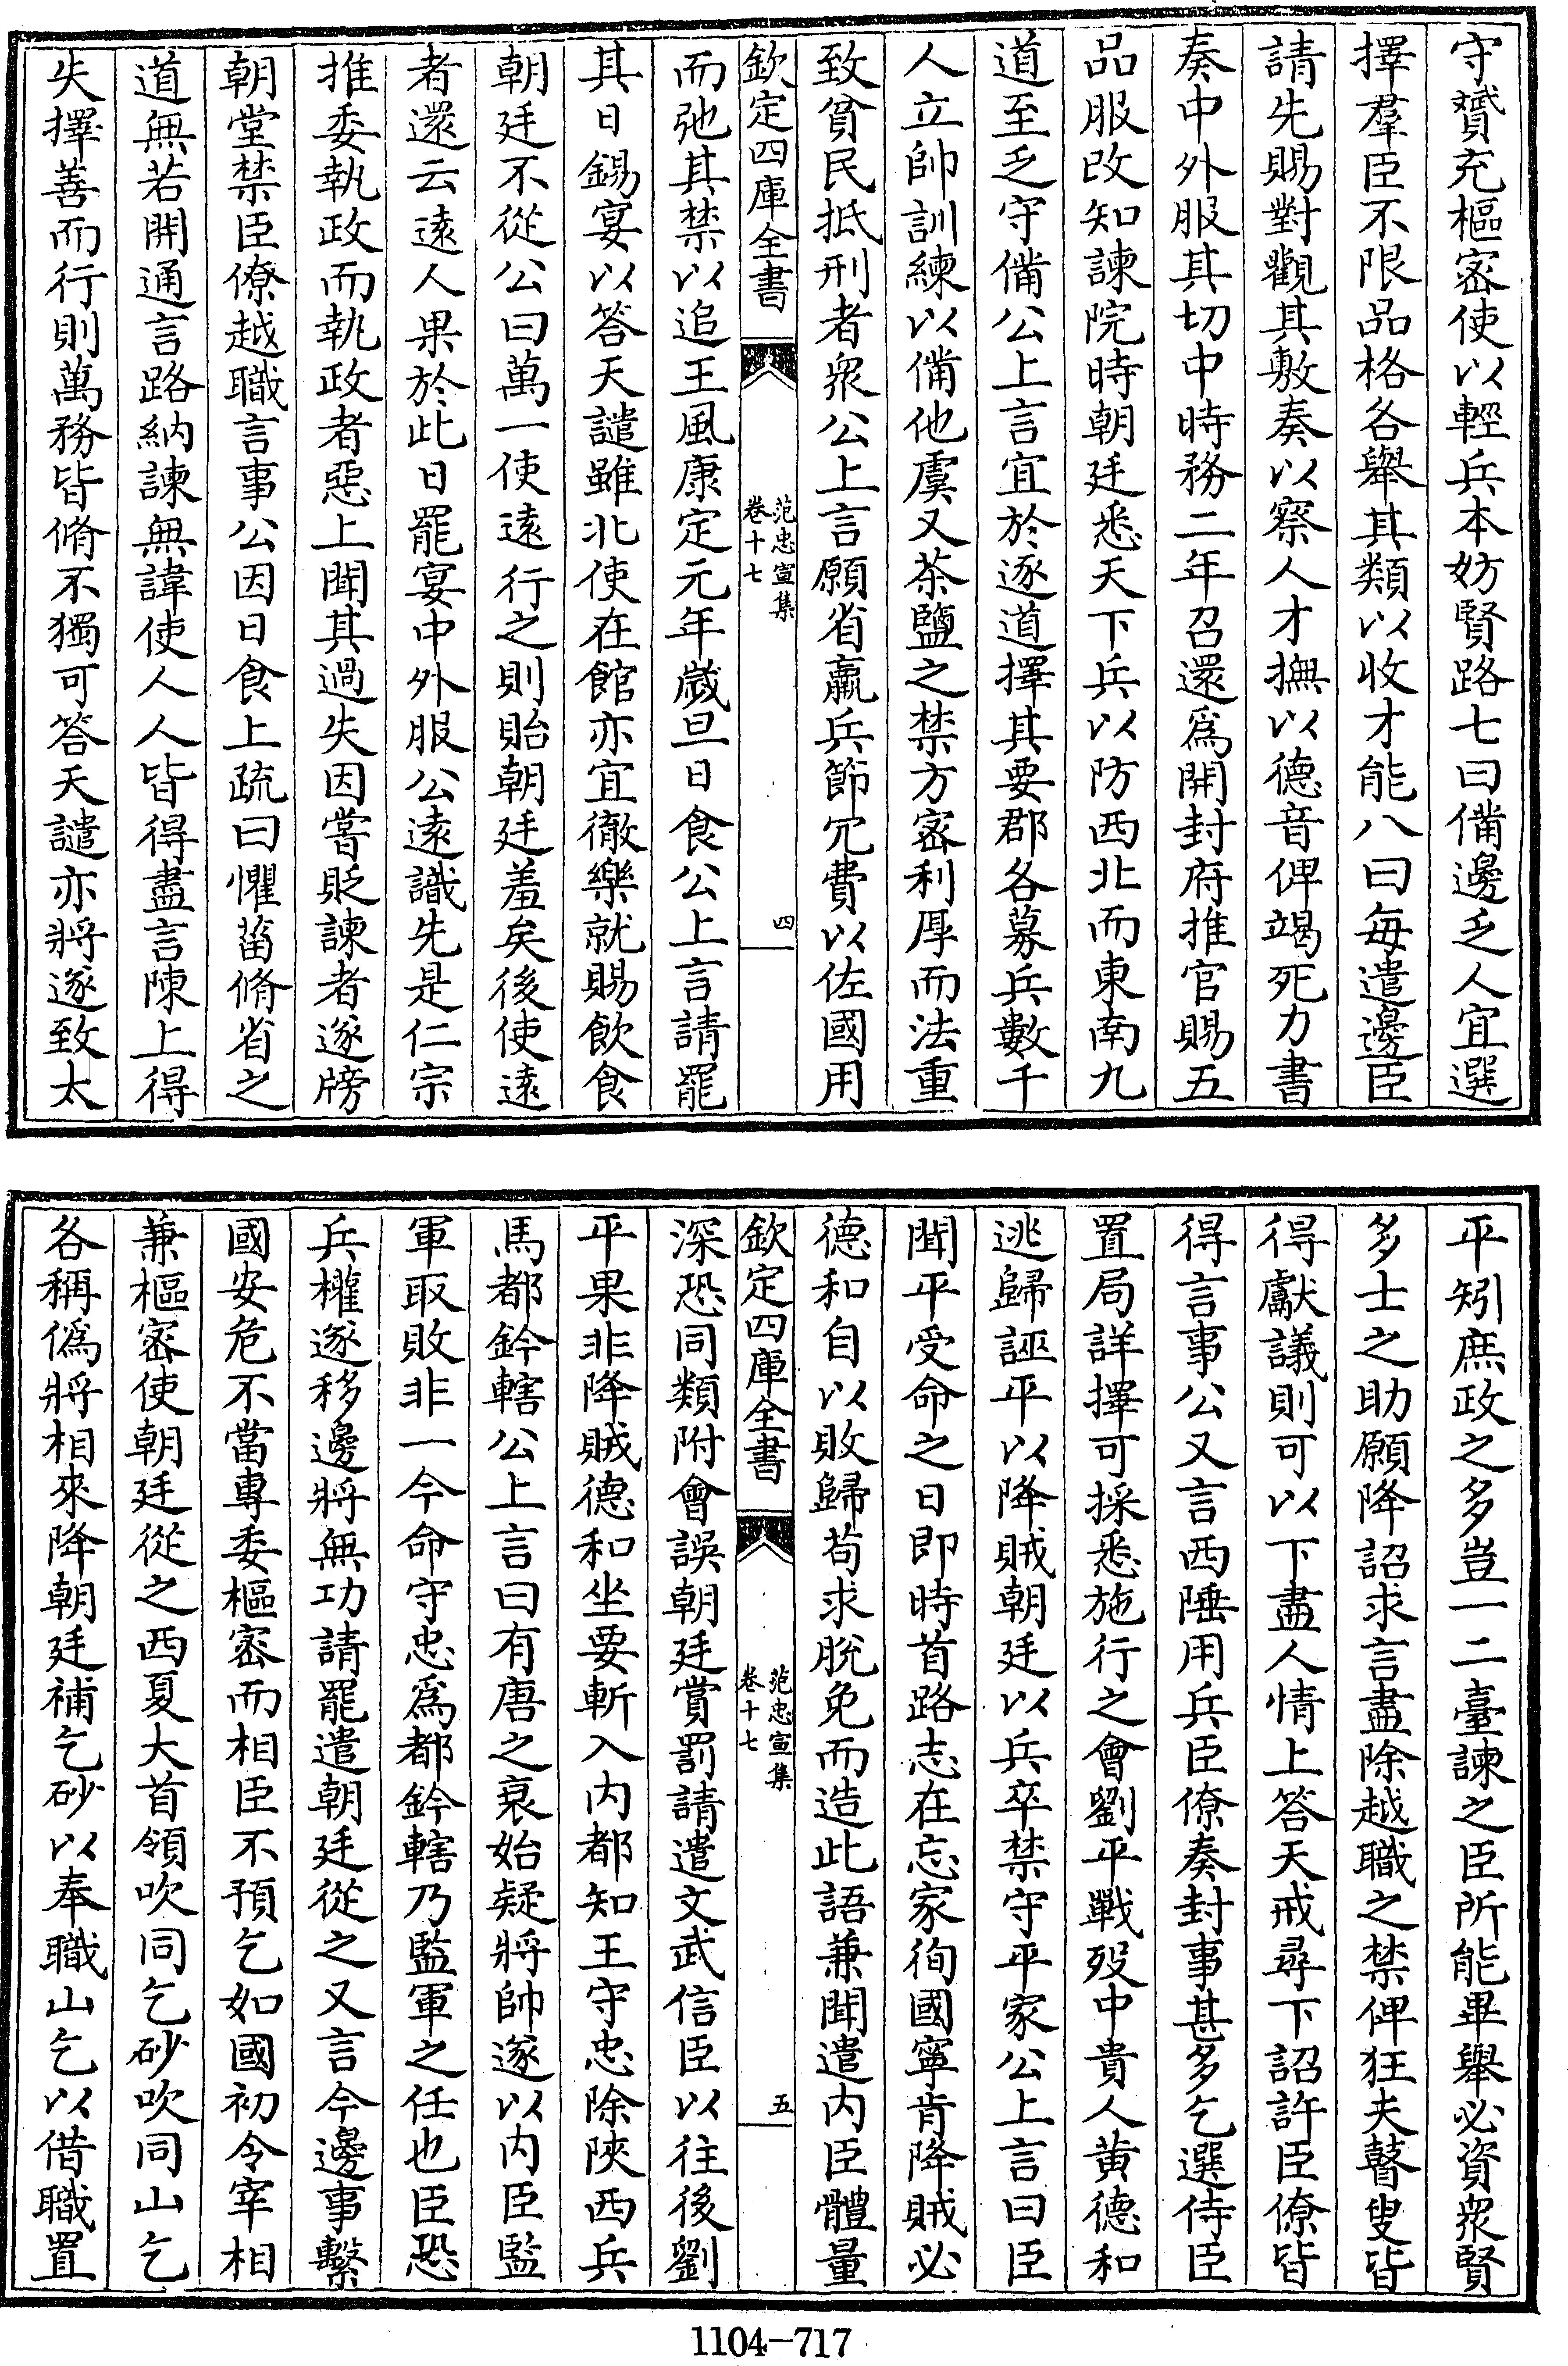 守贇充樞密使以輕兵本妨賢路七曰備邊乏人宜選
擇羣臣不限品格各舉其類以收才能八曰每遣邊臣
請先賜對觀其敷奏以察人才撫以德音俾竭死力書
奏中外服其切中時務二年召還爲開封府推官賜五
品服改知諫院時朝廷悉天下兵以防西北而東南九
道至乏守備公上言宜於逐道擇其要郡各募兵數千
人立帥訓練以備他虞又茶鹽之禁方密利厚而法重
致貧民抵刑者衆公上言願省羸兵節冗費以佐國用
欽定四庫全書
范忠宣集
卷十七
四
而弛其禁以追王風康定元年歲旦日食公上言請罷
其日錫宴以答天譴雖北使在館亦宜徹樂就賜飲食
朝廷不從公曰萬一使遠行之則貽朝廷羞矣後使遠
者還云遠人果於此日罷宴中外服公遠識先是仁宗
推委執政而執政者惡上聞其過失因嘗貶諫者遂牓
朝堂禁臣僚越職言事公因日食上疏曰懼菑脩省之
道無若開通言路納諫無諱使人人皆得盡言陳上得
失擇善而行則萬務皆脩不獨可答天譴亦將遂致太
平矧庶政之多豈一二臺諫之臣所能畢舉必資衆賢
多士之助願降詔求言盡除越職之禁俾狂夫瞽叟皆
得獻議則可以下盡人情上答天戒尋下詔許臣僚皆
得言事公又言西陲用兵臣僚奏封事甚多乞選侍臣
置局詳擇可採悉施行之會劉平戰歿中貴人黄德和
逃歸誣平以降賊朝廷以兵卒禁守平家公上言曰臣
聞平受命之日即時首路志在忘家徇國寧肯降賊必
德和自以敗歸苟求脫免而造此語兼聞遣内臣體量
欽定四庫全書
范忠宣集
卷十七
五
深恐同類附會誤朝廷賞罰請遣文武信臣以往後劉
平果非降賊德和坐要斬入内都知王守忠除陜西兵
馬都鈐轄公上言曰有唐之衰始疑將帥遂以内臣監
軍取敗非一今命守忠爲都鈐轄乃監軍之任也臣恐
兵權遂移邊將無功請罷遣朝廷從之又言今邊事繫
國安危不當專委樞密而相臣不預乞如國初令宰相
兼樞密使朝廷從之西夏大首領吹同乞砂吹同山乞
各稱僞將相來降朝廷補乞砂以奉職山乞以借職置
1104-717